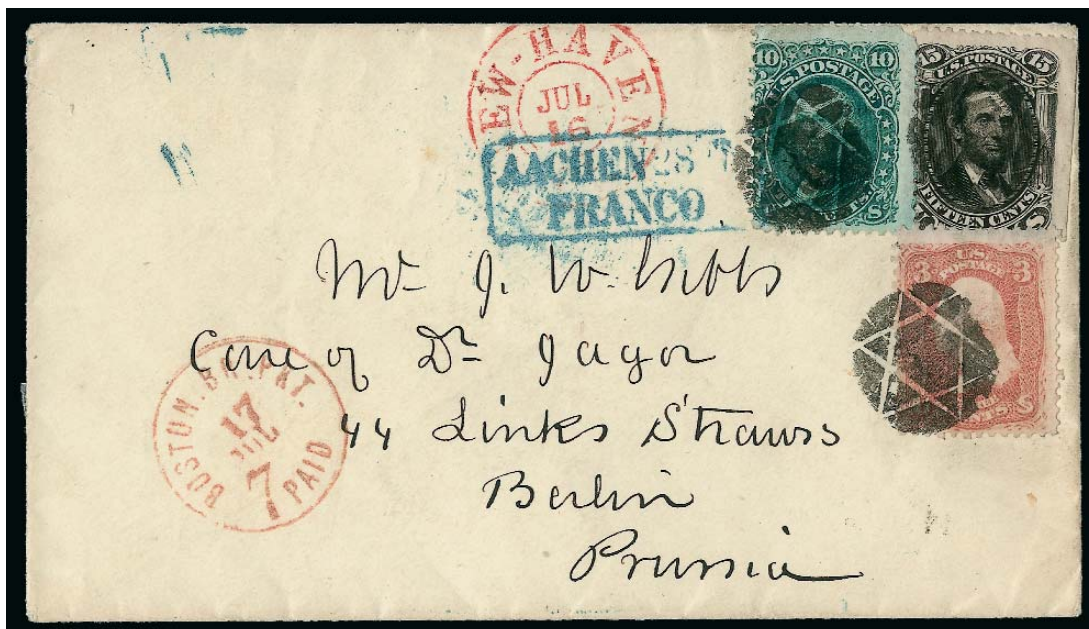 EW-HAVEN
JUL
16
AACHEN 28
FRANCO
10 U.S. POSTAGE 10
15 U.S. POSTAGE 15
FIFTEEN CENTS
3 U.S. POSTAGE 3
Mr J. W. Gibbs
Care of Dr Jagor
44 Links Strauss
Berlin
Prussia
BOSTON. BR. PKT.
17
JUL
7 PAID